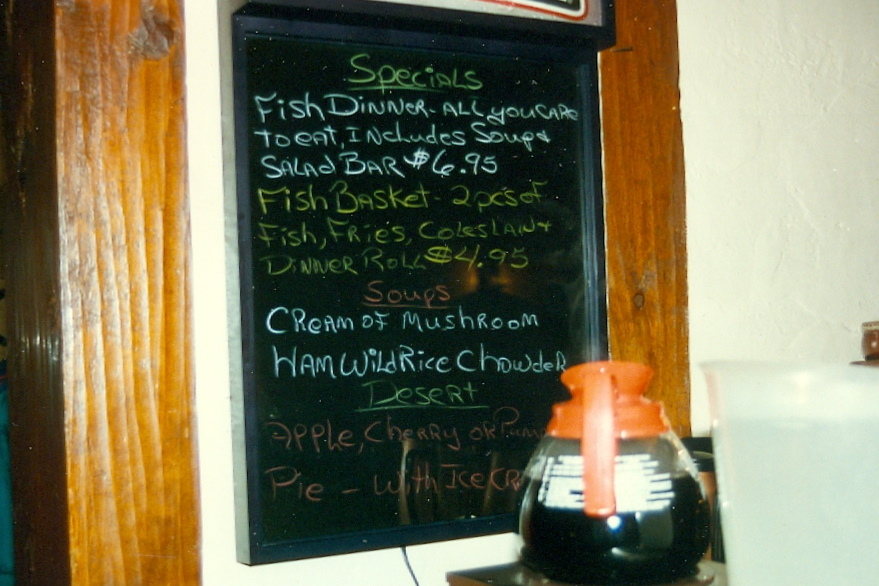 Specials
Fish Dinner - All you care
to eat, Includes Soup &
Salad Bar $6.95
Fish Basket - 2 pcs of
Fish, Fries, Coleslaw &
Dinner Roll $4.95
Soups
Cream of Mushroom
Ham Wild Rice Chowder
Desert
Apple, Cherry or
Pie - With Ice